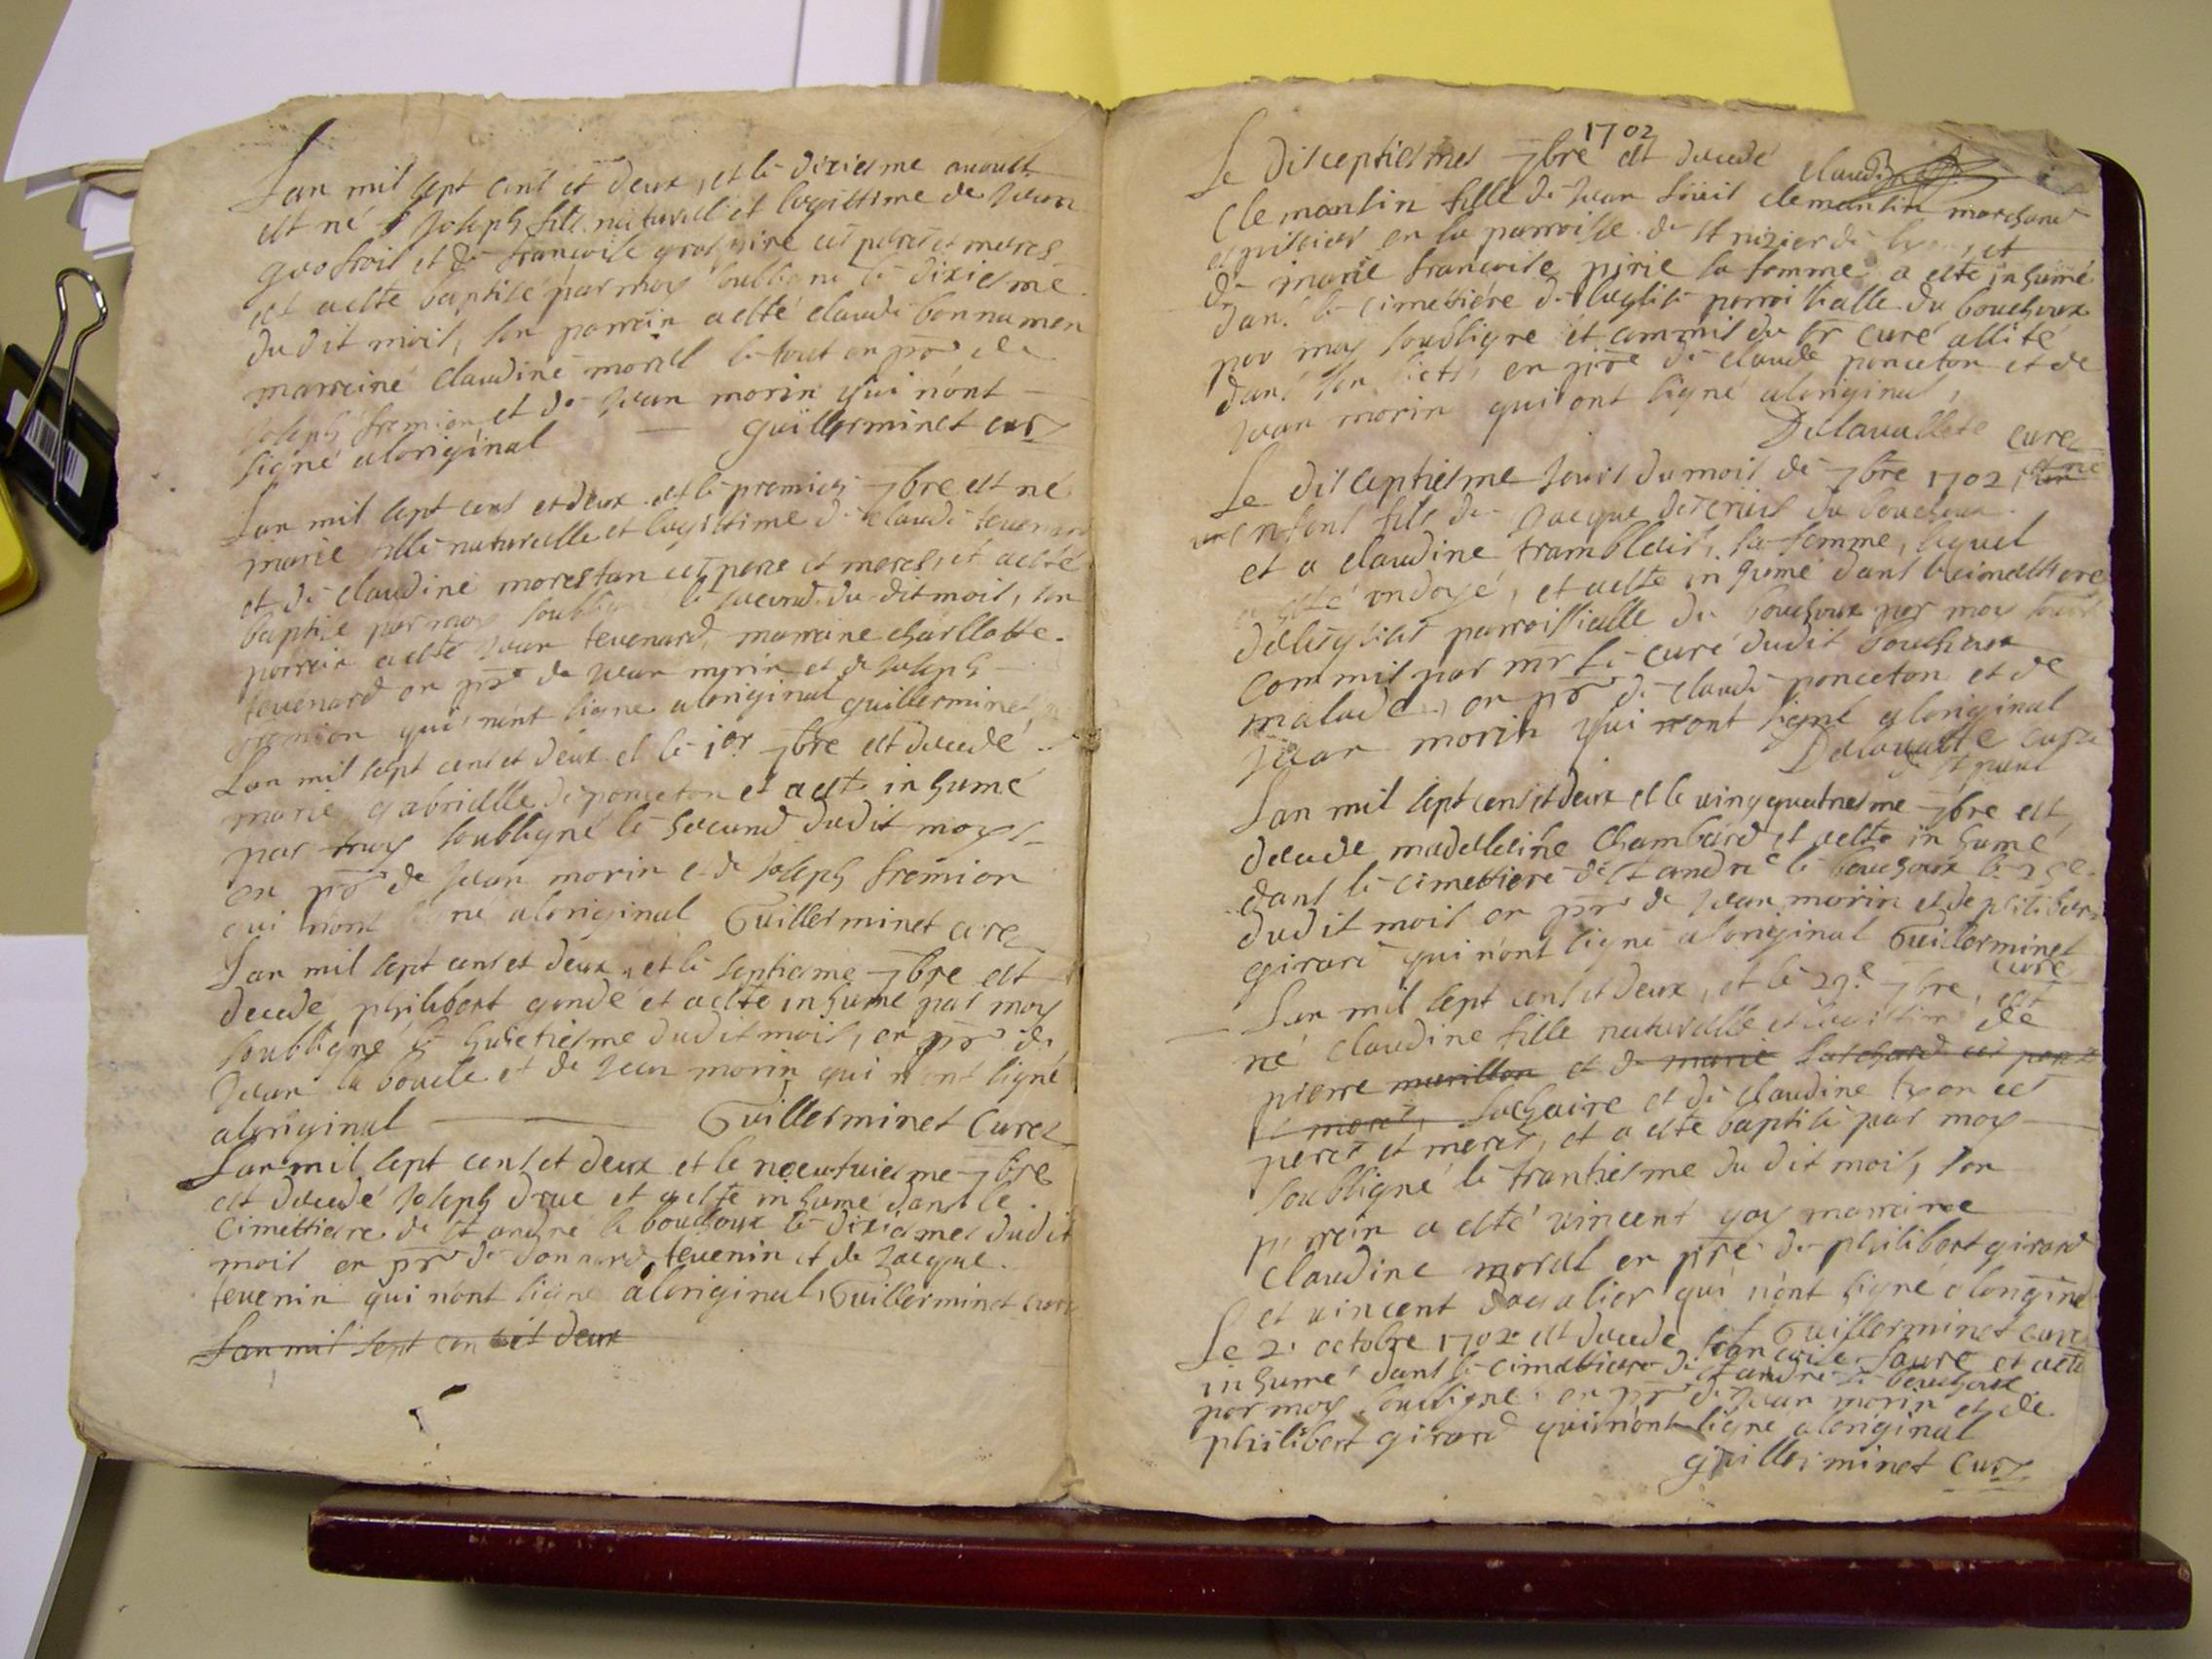 Lan mil sept cent et deux, et le dixiesme auoust
est né Joseph fils naturel et legittime de Jean
et de francoise ces peres et meres
est a esté baptisé par moy soubsigné le dixiesme
dudit mois, son parrein a esté claude bonnamen
marreine claudine morel le tout en pñr de
Joseph fremion et de Jean morin qui nont
signé aloriginal guillerminet curé
Lan mil sept cent et deux et le premier 7bre est né
marie fille naturelle et legittime de claude teuenard
et de claudine morestan ces pere et meres, et a esté
baptisé par moy soubsigné le second dudit mois, son
parrein a esté Jean teuenard, marreine charllotte
teuenard en pñr de Jean morin et de Joseph
fremion qui nont signe aloriginal guillerminet
Lan mil sept cent et deux et le 1er 7bre est decedé
marie gabrielle de ponceton et a esté inhumé
par moy soubsigné le second dudit moys
en pñr de Jean morin et de Joseph fremion
qui nont signé aloriginal Guillerminet curé
Lan mil sept cent et deux, et le septiesme 7bre est
decede philibert gonde et a esté inhumé par moy
soubsigné le huictiesme dudit mois, en pñr de
Jean la boucle et de Jean morin qui nont signé
aloriginal Guillerminet Curé
Lan mil sept cent et deux et le neeutuiesme 7bre
est decedé Joseph drue et a esté inhumé dans le
cimettiere de St andré le bouchoux le dixiesmes dudit
mois en pñr de donnard teuenin et de Jacque
teuenin qui nont signe aloriginal Guillerminet curé
Lan mil sept cen et deux
1702
Le disceptiesmes 7bre est decedé claudine
Clemantin fille de Jean clemantin marchand
espissier en la parroisse de St nizier de lyon, et
de marie francoise pirie sa femme a esté inhumé
dans le cimettiére de leglise parroissialle du bouchoux
par moy soubsigne et commis du sr curé allité
dans son lict, en pñre de claude ponceton et de
Jean morin qui ont signé aloriginal,
Delauallete curé
Le disceptiesme Jours du mois de 7bre 1702, est né
un enfant fils de Jacque du bouchoux
et a claudine tramblais, sa femme, lequel
a esté ondoyé, et a esté inhumé dans le cimettiere
de leglise parroissialle du bouchoux par moy soub
commis par mr le curé dudit bouchoux
malade, en pñr de claude ponceton et de
Jean morin qui nont signé aloriginal
Delauallette curé
de St paul
Lan mil sept cent et deux et le uingquatriesme 7bre est
decede madelleine Chambard et a esté inhumé
dans le cimettiere de St andré le bouchoux le 25e
dudit mois en pñr de Jean morin et de philibert
girard qui nont signe aloriginal Guillerminet
curé
Lan mil sept cent et deux, et le 29e 7bre, est
né claudine fille naturelle et legittime de
pierre murillon et de marie ces pere
et meres, et de claudine tyon ces
peres et meres, et a esté baptisé par moy
soubsigné le trantiesme du dit mois, son
parrein a esté uincent goy marraine
Claudine morel en pñre de philibert girard
et uincent qui nont signé alorigine
Guillerminet curé
Le 2. octobre 1702 est decede francoise faure et a esté
inhumé dans le cimettiere de St andré le bouchoux
par moy soubsigne en pñr de Jean morin et de
philibert girard qui nont signé aloriginal
guillerminet curé